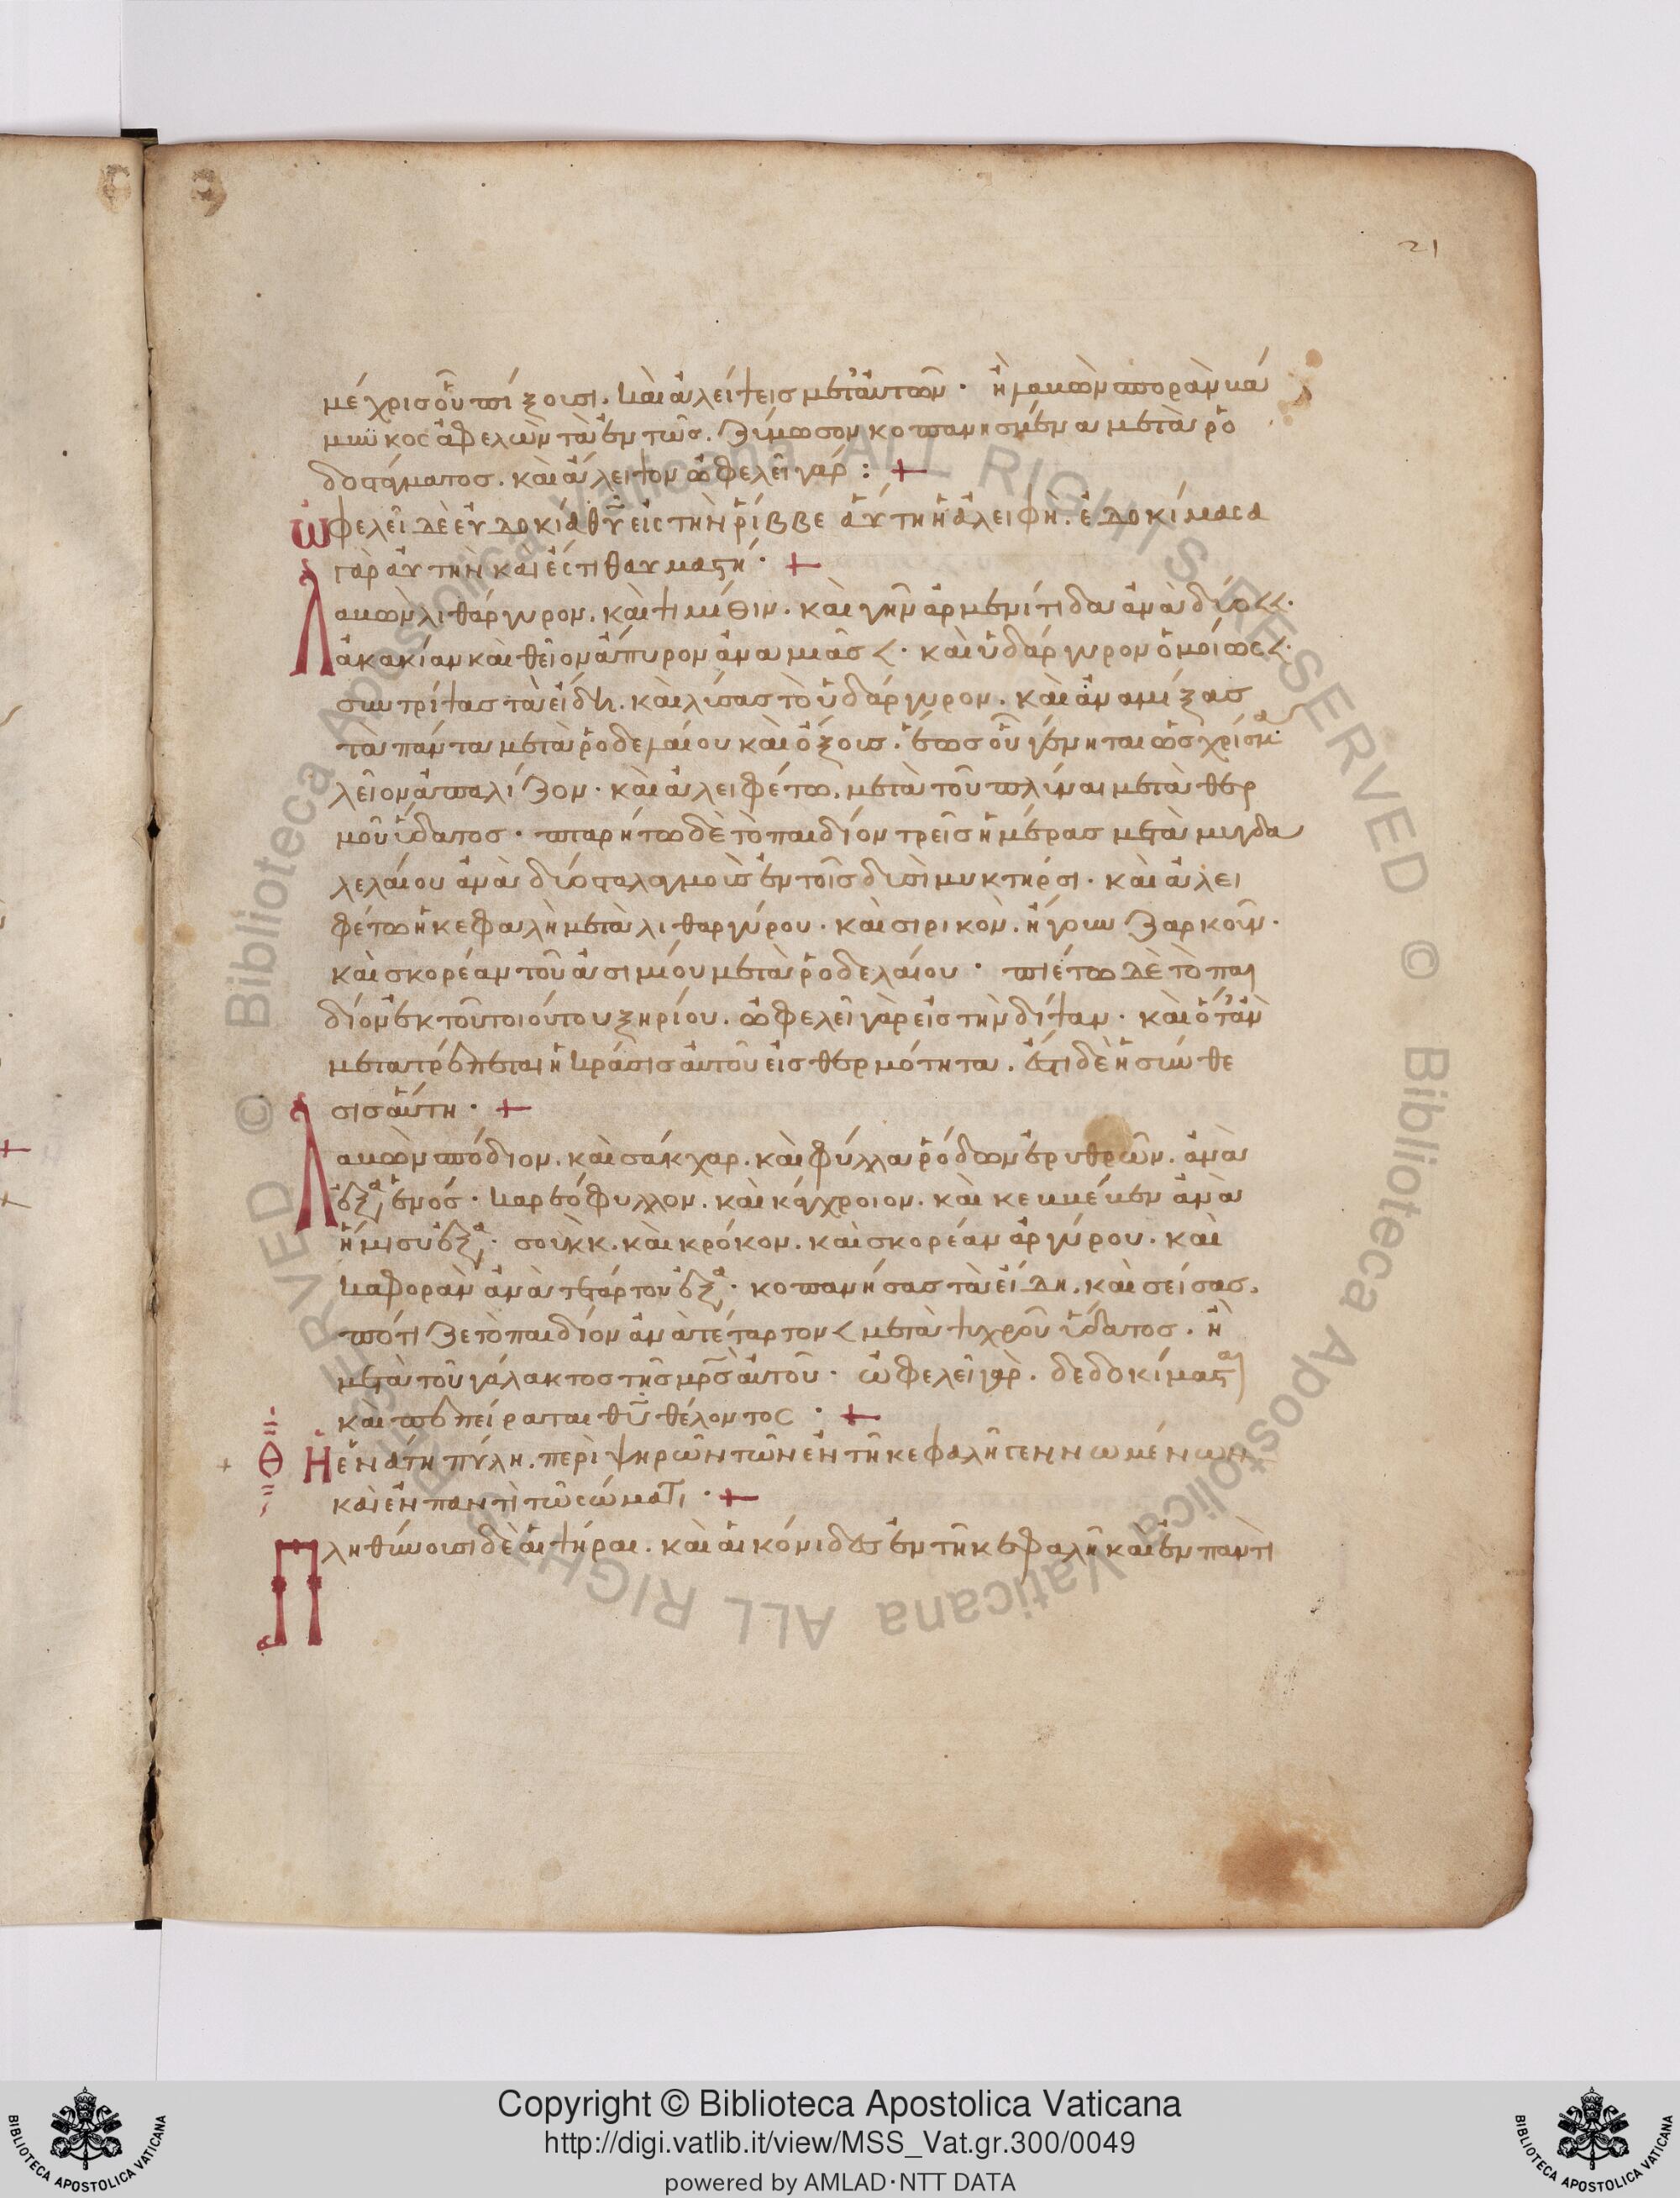 21
μέχρις οὗ πίξουσι. καὶ ἀλείψεις μετ' αὐτῶν · ἢ λαβὼν σποράν κά
μυϊκος ἀφελὼν τὰ ἐντὸς. ζύμωσον κοπανησμένα μετὰ ρο
δοστάγματος. καὶ ἄλειψον ὠφελεῖ γάρ : +
ὠφελεῖ δὲ εὐδοκία θῦ εἰς τὴν ῥίββε αὕτη ἡ ἀλειφὴ. ἐδοκίμασα
γὰρ αὐτὴν καὶ ἐστι θαυμαστή · +
Λαβὼν λιθάργυρον. καὶ ψιμίθιν. καὶ γῆν ἀρμενίτιδα ἀνὰ δύο <<.
ἀκακίαν καὶ θεῖον ἄπυρον ἀνὰ μιᾶς <. καὶ ὑδάργυρον ὁμοίως <.
συντρίψας τὰ εἴδη. καὶ λύσας τὸ ὑδάργυρον. καὶ ἀναμίξας
τὰ πάντα μετὰ ῥοδελαίου καὶ ὄξους. ἕως οὗ γένηται ὡς χρίσμα
λεῖον ἀπαλίζον. καὶ ἀλειφέτω. μετὰ τοῦ πλύναι μετὰ θερ
μοῦ ὕδατος · παρήτω δὲ τὸ παιδίον τρεῖς ἡμέρας μετὰ μυγδα
λελαίου ἀνὰ δύο σταλαγμοὺς ἐν τοῖς δυσὶ μυκτῆρσι. καὶ ἀλει
φέτω ἡ κεφαλὴ μετὰ λιθαργύρου. καὶ σιρικόν. ἤγουν ζαρκούν.
καὶ σκορέαν τοῦ ἀσιμίου μετὰ ῥοδελαίου · πιέτω δὲ τὸ παι
δίον ἐκ τοῦ τοιούτου ξηρίου. ὠφελεῖ γὰρ εἰς τὴν δίψαν. καὶ ὅταν
μετατρέπεται ἡ κράσις αὐτοῦ εἰς θερμότητα. ἔστι δὲ ἡ σύνθε
σις αὕτη · +
Λαβὼν σπόδιον. καὶ σάκχαρ. καὶ φύλλα ῥόδων ἐρυθρῶν. ἀνὰ
ἑξα ἑνός. καρεόφυλλον. καὶ κάγχροιον. καὶ κεκκέκεν ἀνὰ
ἥμισυ ἑξα. σοὺκκ. καὶ κρόκον. καὶ σκορέαν ἀργύρου. καὶ
καφορὰν ἀνὰ τετάρτον ἑξα. κοπανήσας τὰ εἴδη. καὶ σείσας.
πότιζε τὸ παιδίον ἀνὰ τέταρτον < μετὰ ψυχροῦ ὕδατος. ἢ
μετὰ τοῦ γάλακτος τῆς μρς αὐτοῦ. ὠφελεῖ γὰρ. δεδοκίμαστα
καὶ πεπείραται θῦ θέλοντος · +
Θ Ἡ ἐνάτη πύλη. περὶ ψηρῶν τῶν ἐν τῆ κεφαλῆ γεννωμένων
καὶ ἐν παντὶ τῶ σώματι · +
Πληθύνουσι δὲ αἱ ψῆραι. καὶ αἱ κόνιδες ἐν τῆ κεφαλῆ καὶ ἐν παντὶ
© Biblioteca Apostolica Vaticana ALL RIGHTS RESERVED
© Biblioteca Apostolica Vaticana ALL RIGHTS RESERVED
Copyright © Biblioteca Apostolica Vaticana
http://digi.vatlib.it/view/MSS_Vat.gr.300/0049
powered by AMLAD·NTT DATA
BIBLIOTECA APOSTOLICA VATICANA
BIBLIOTECA APOSTOLICA VATICANA